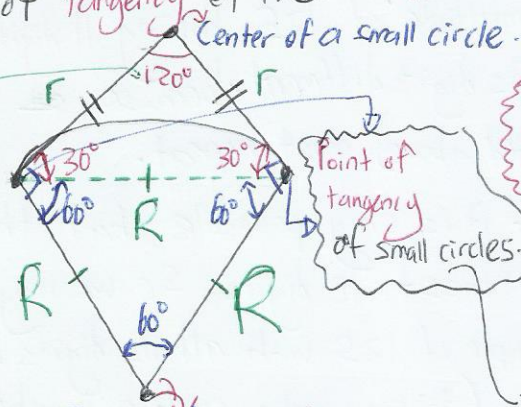 of Tangency of the
Center of a small circle.
r
120°
r
30°
30°
Point of
tangency
of small circles.
60°
R
60°
R
R
60°